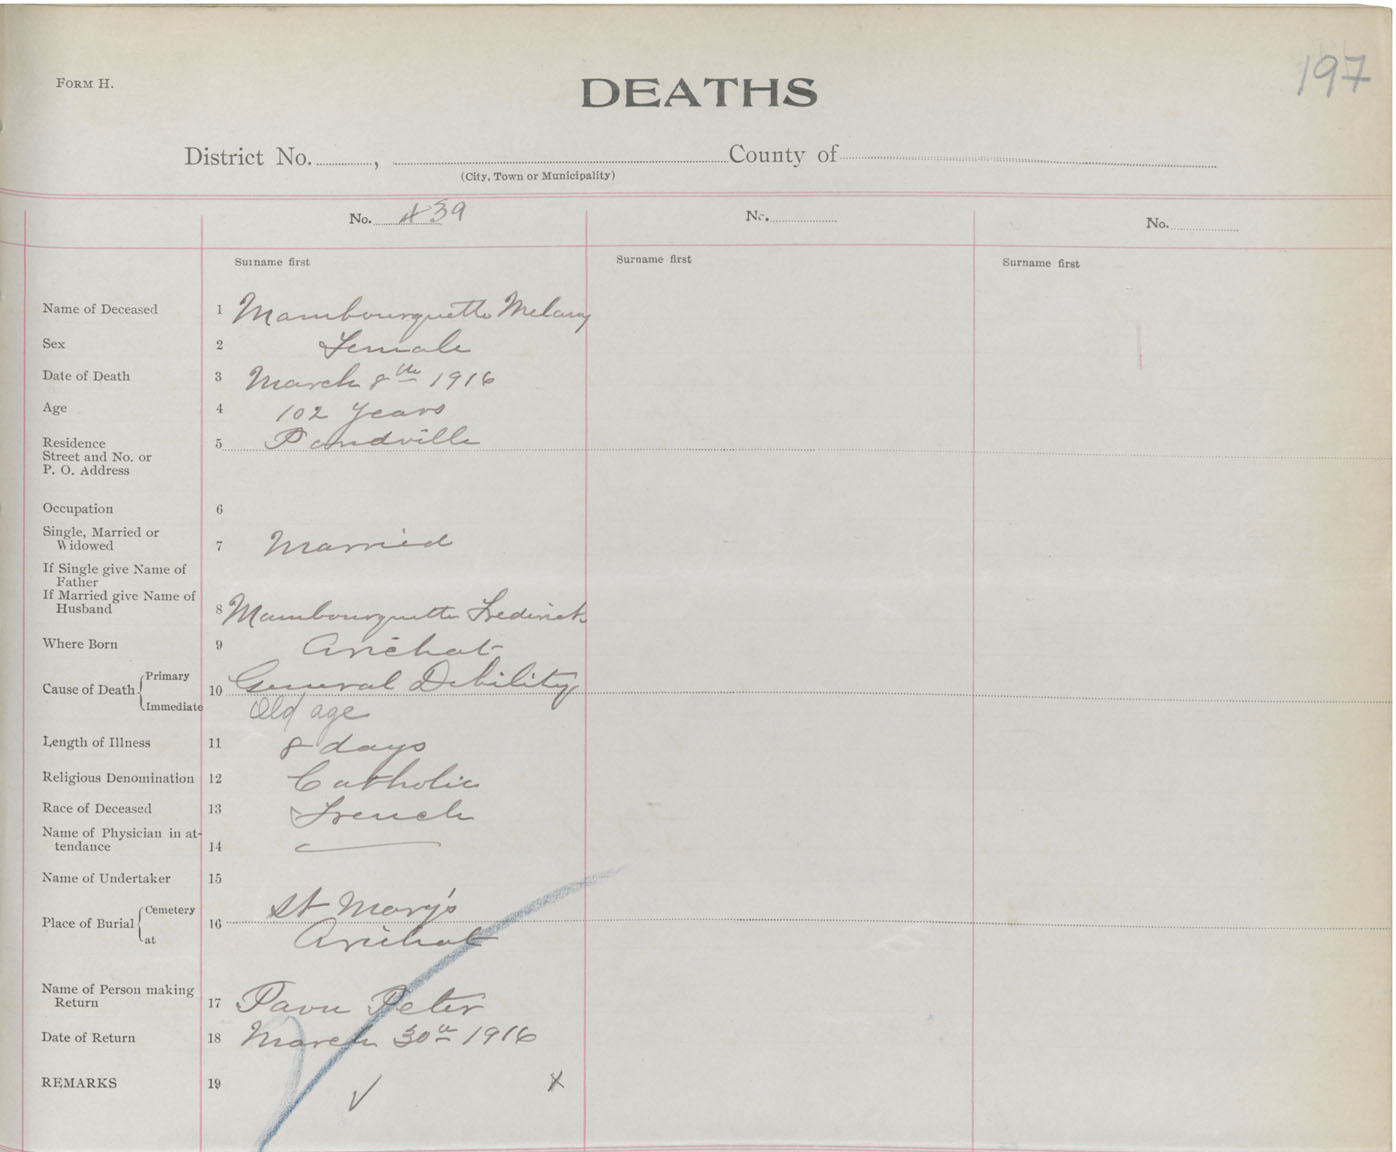 197
FORM H.
DEATHS
District No. , County of
(City, Town or Municipality)
No. 439 No. No.
Surname first Surname first Surname first
Name of Deceased 1 Mambourquette Melany
Sex 2 Female
Date of Death 3 March 8th 1916
Age 4 102 years
Residence 5 Pondville
Street and No. or
P. O. Address
Occupation 6
Single, Married or
Widowed 7 Married
If Single give Name of
Father
If Married give Name of
Husband 8 Mambourquette Frederick
Where Born 9 Arichat
Primary
Cause of Death 10 General Debility
Immediate Old age
Length of Illness 11 8 days
Religious Denomination 12 Catholic
Race of Deceased 13 French
Name of Physician in at-
tendance 14
Name of Undertaker 15
Cemetery St Mary's
Place of Burial 16
at Arichat
Name of Person making
Return 17 Peter
Date of Return 18 March 30th 1916
REMARKS 19